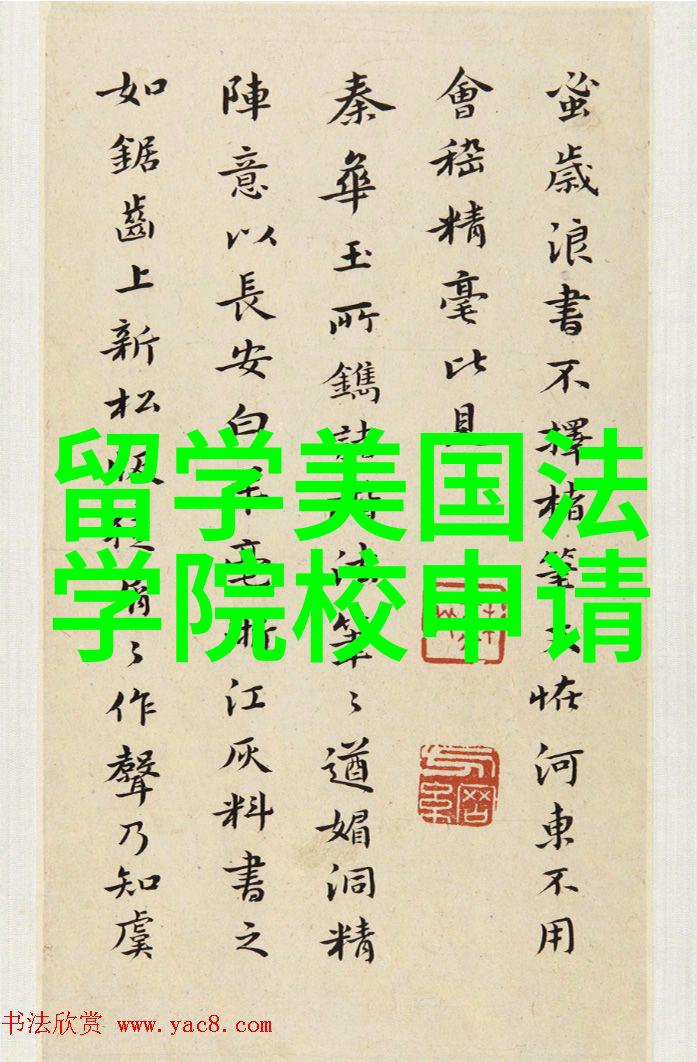 留学美国法
学院校申请
蚤歲浪書不擇楮筆恠河東不用
會稽精毫比見
秦華玉所鐫諸法筆〻遒媚洞精
陣意以長安白羊毫浙江灰料書之
如鋸齒上新松〻作聲乃知虞
书法欣赏 www.yac8.com